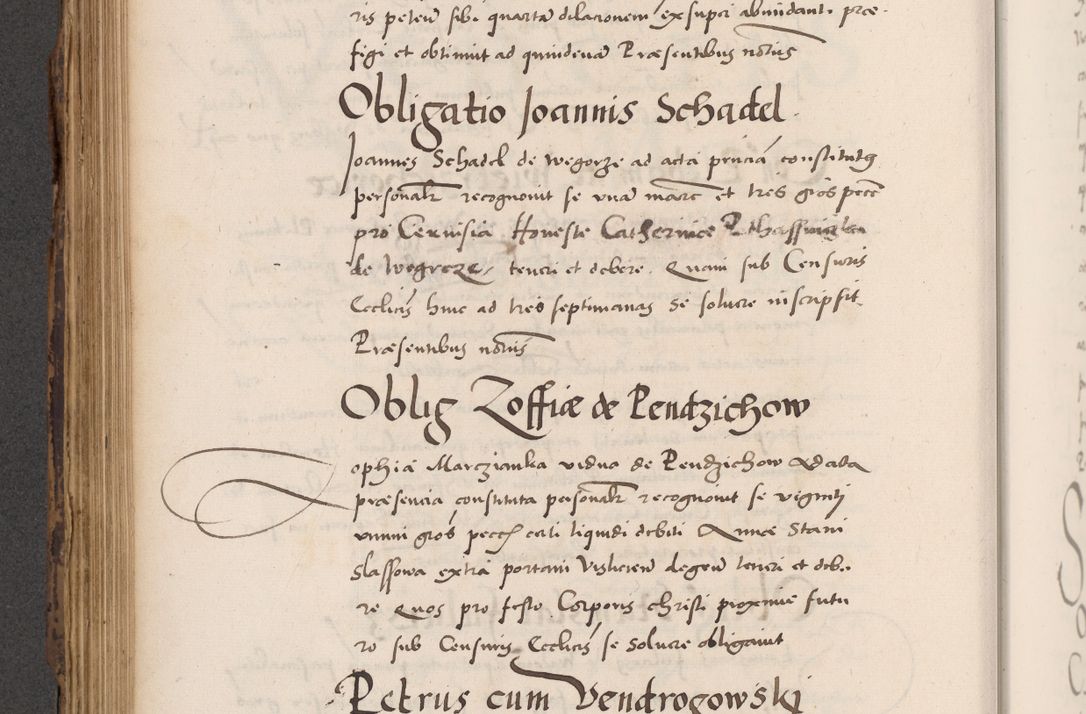 ris peten sibi quarta dilacionem ex super abundanti præ
figi et obtinuit ad quindena Præsentibus notus
Obligatio Joannis Schadel
Joannes Schadel de Wegorze ad acta prncia constitutus
personalr recognouit se vna marc et tres gros pecc
pro Ceruisia Honeste Catherinæ
de Wegrcze teneri et debere. Quam sub Censuris
Ecclicis hinc ad tres septimanas se soluere inscripsit
Præsentibus notus
Oblig Zoffiæ de Pendzichow
ophia Marczianka vidua de Pendzichow ad acta
præsencia constituta personalr recognouit se viginti
vnum gros pecc certi liquidi debiti Annæ Stani
slaffowa extra portam Vislicien degen teneri et deb
re Quos pro festo Corporis christi proxime futu
ro sub Censuris Ecclicis se soluere obligauit
Petrus cum Vendrogowski